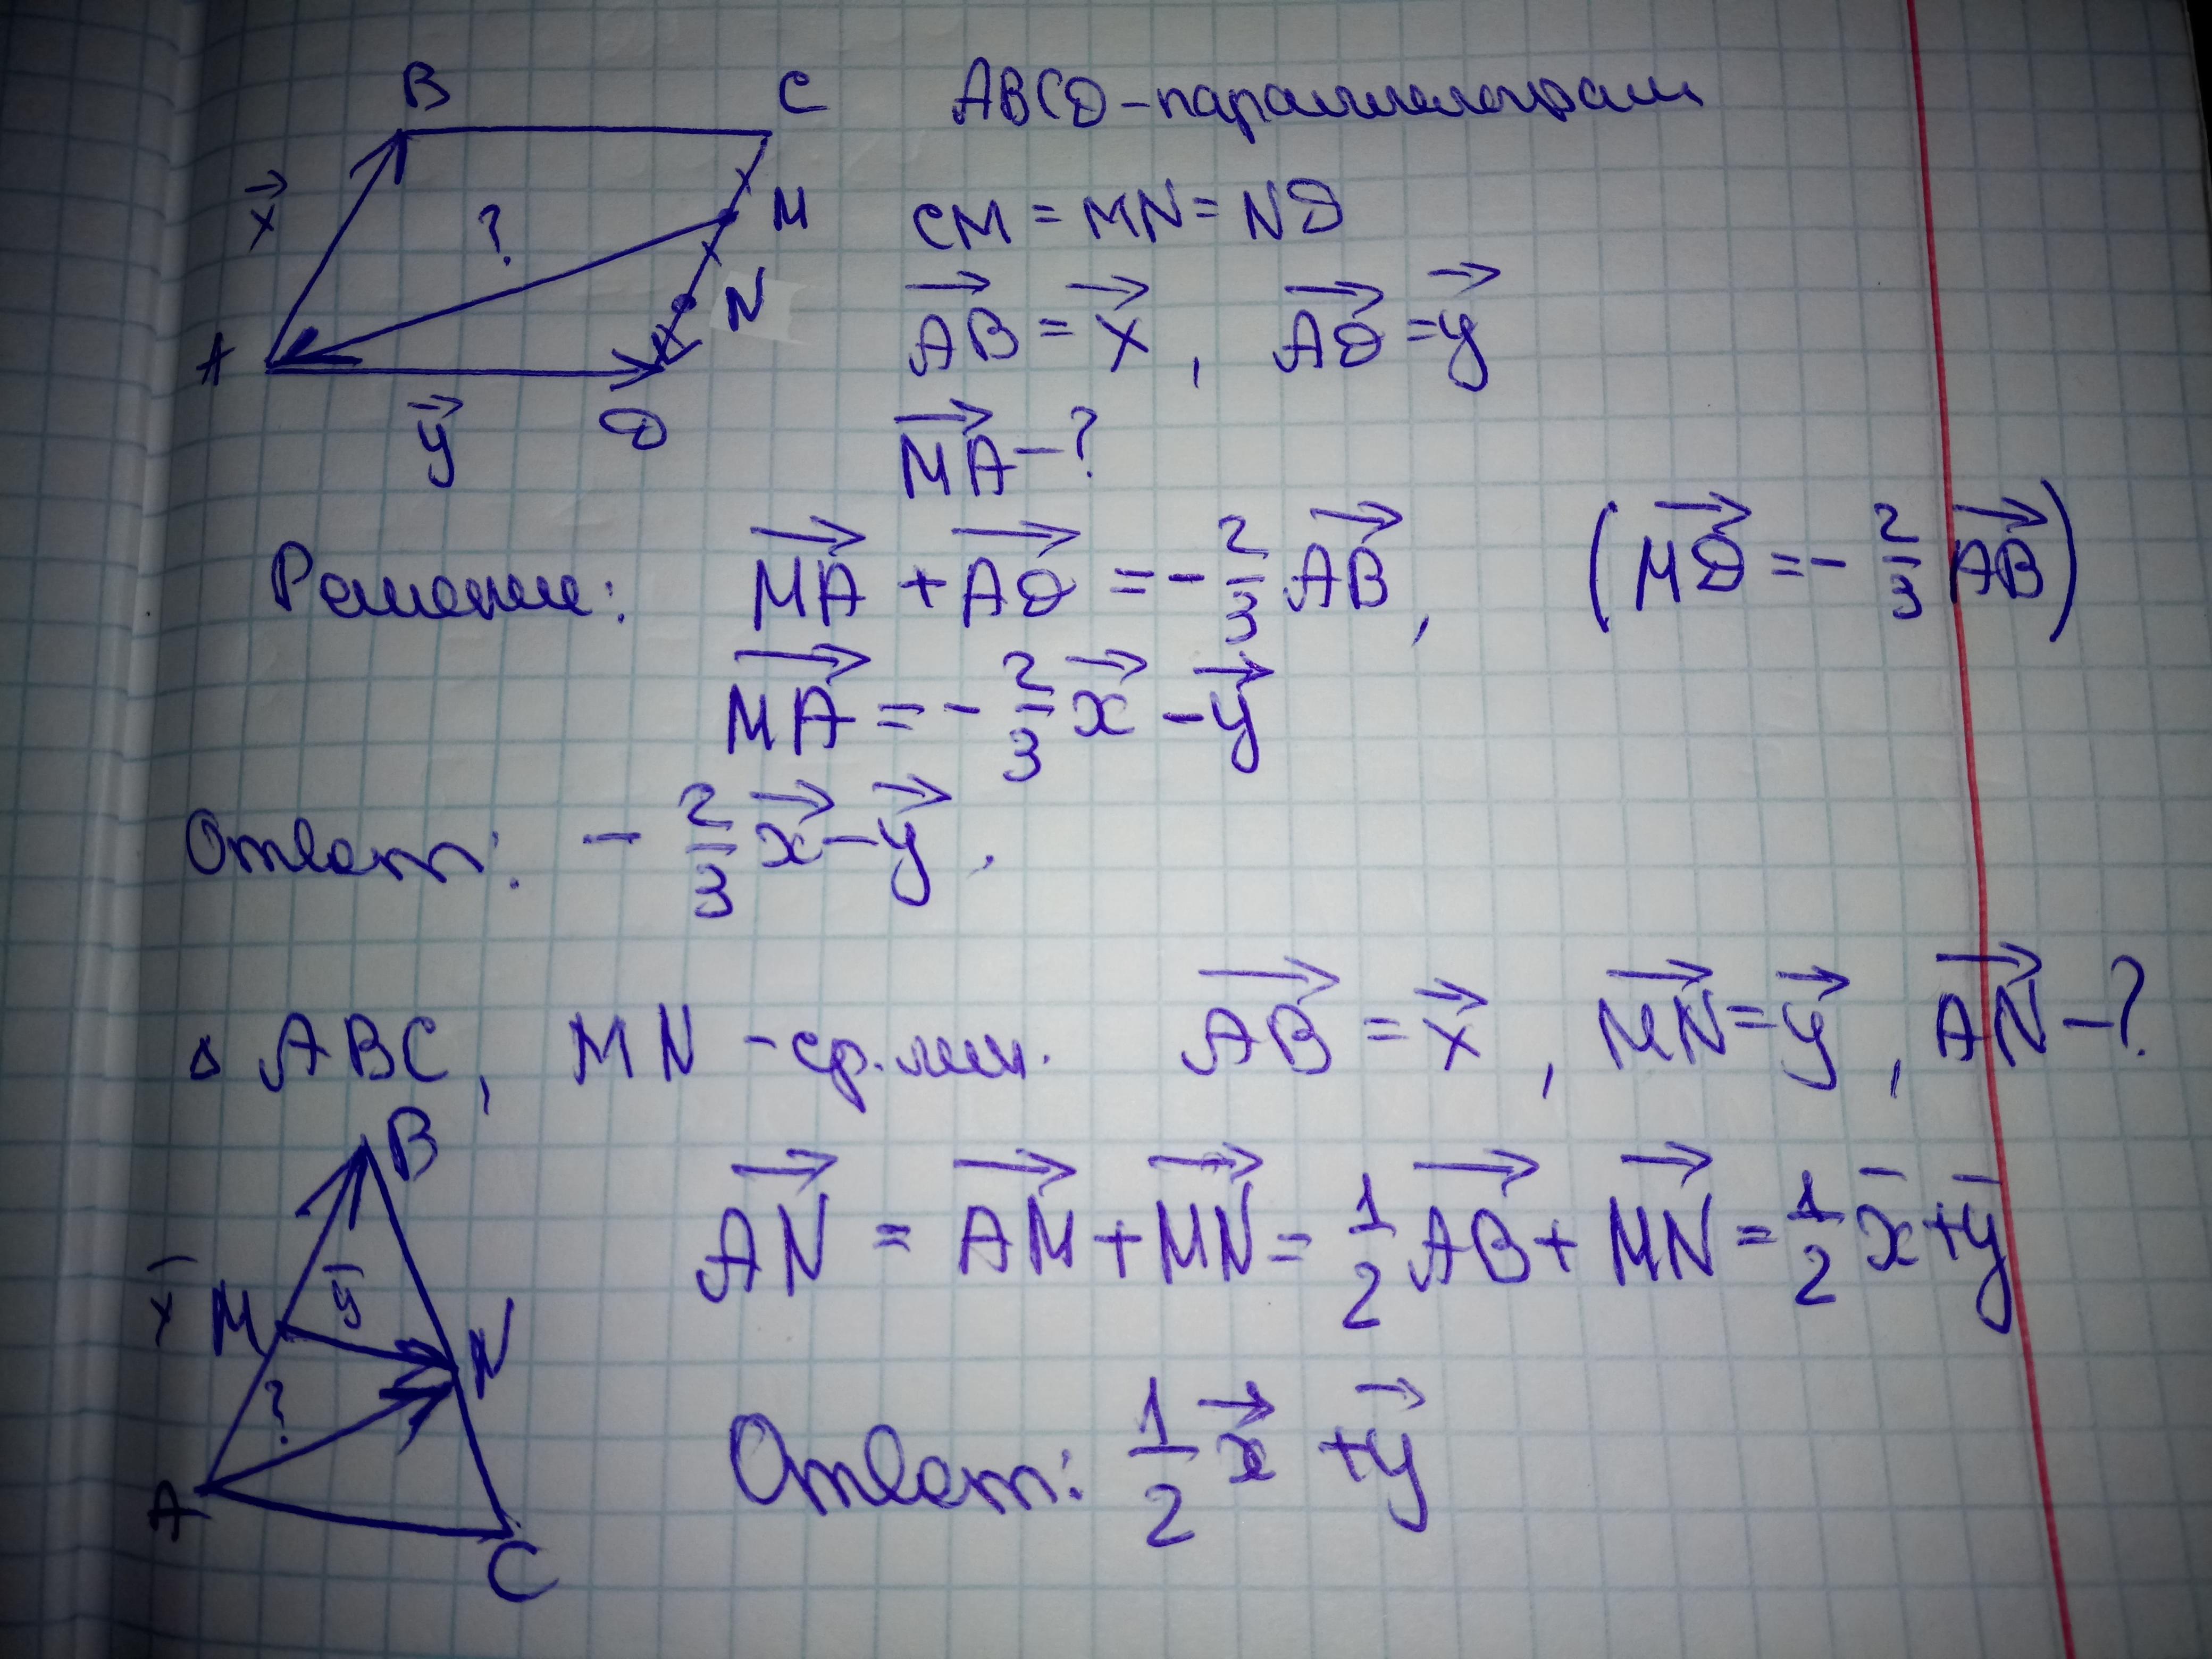 B C ABCD-параллелограм
x⃗ ? M CM = MN = ND
N AB⃗ = x⃗, AD⃗ = y⃗
A
y⃗ D MA⃗ - ?
Решение: MA⃗ + AD⃗ = - 2/3 AB⃗, (MD⃗ = - 2/3 AB⃗)
MA⃗ = - 2/3 x⃗ - y⃗
Ответ: - 2/3 x⃗ - y⃗.
Δ ABC, MN - ср. лин. AB⃗ = x⃗, MN⃗ = y⃗, AN⃗ - ?
B
AN⃗ = AM⃗ + MN⃗ = 1/2 AB⃗ + MN⃗ = 1/2 x̅ + y̅
x̅ M y̅ N
?
A Ответ: 1/2 x⃗ + y⃗
C